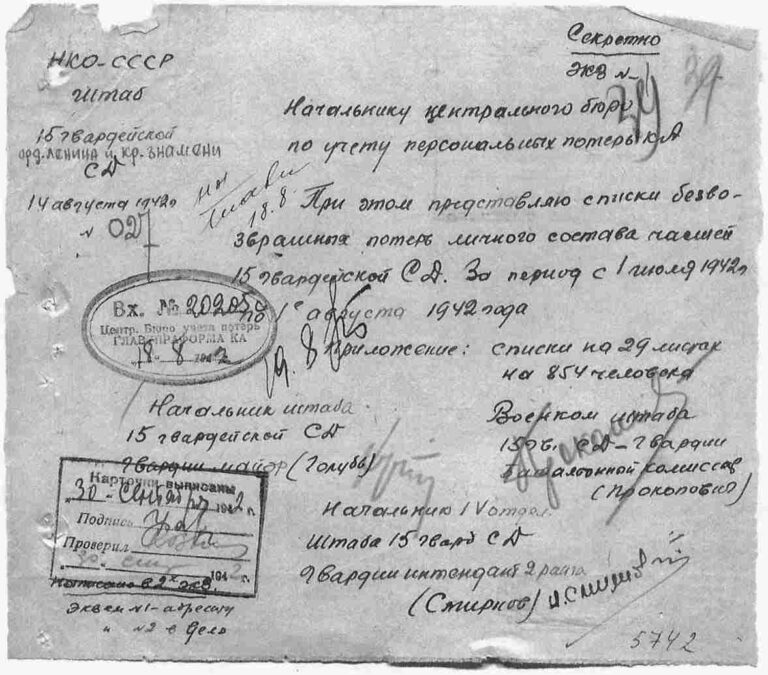 Секретно
экз № 1
39
НКО-СССР
Штаб
15 гвардейской
орд. Ленина и кр. знамени
СД
14 августа 1942г
№ 027
18.8.
Начальнику центрального бюро
по учету персональных потерь КА
При этом представляю списки безво-
звратных потерь личного состава частей
15 гвардейской СД. За период с 1 июля 1942г
по 1е августа 1942 года
Приложение: списки на 29 листах
на 854 человека
Вх. № 20205
Центр. Бюро учета потерь
ГЛАВУПРАФОРМА КА
18-8 1942
Начальник штаба
15 гвардейской СД
Гвардии майор (Голубь)
Военком штаба
15 гв. СД – Гвардии
Батальонной комиссар
(Прокопович)
Начальник IV отдел.
Штаба 15 гвард СД
Гвардии интендант 2 ранга
(Смирнов)
Карточки выписаны
"30" сентября 1942 г.
Подпись
Проверил
1942 г.
Написано в 2х экз.
Экзем №1 – адресату
и №2 в дело
5742